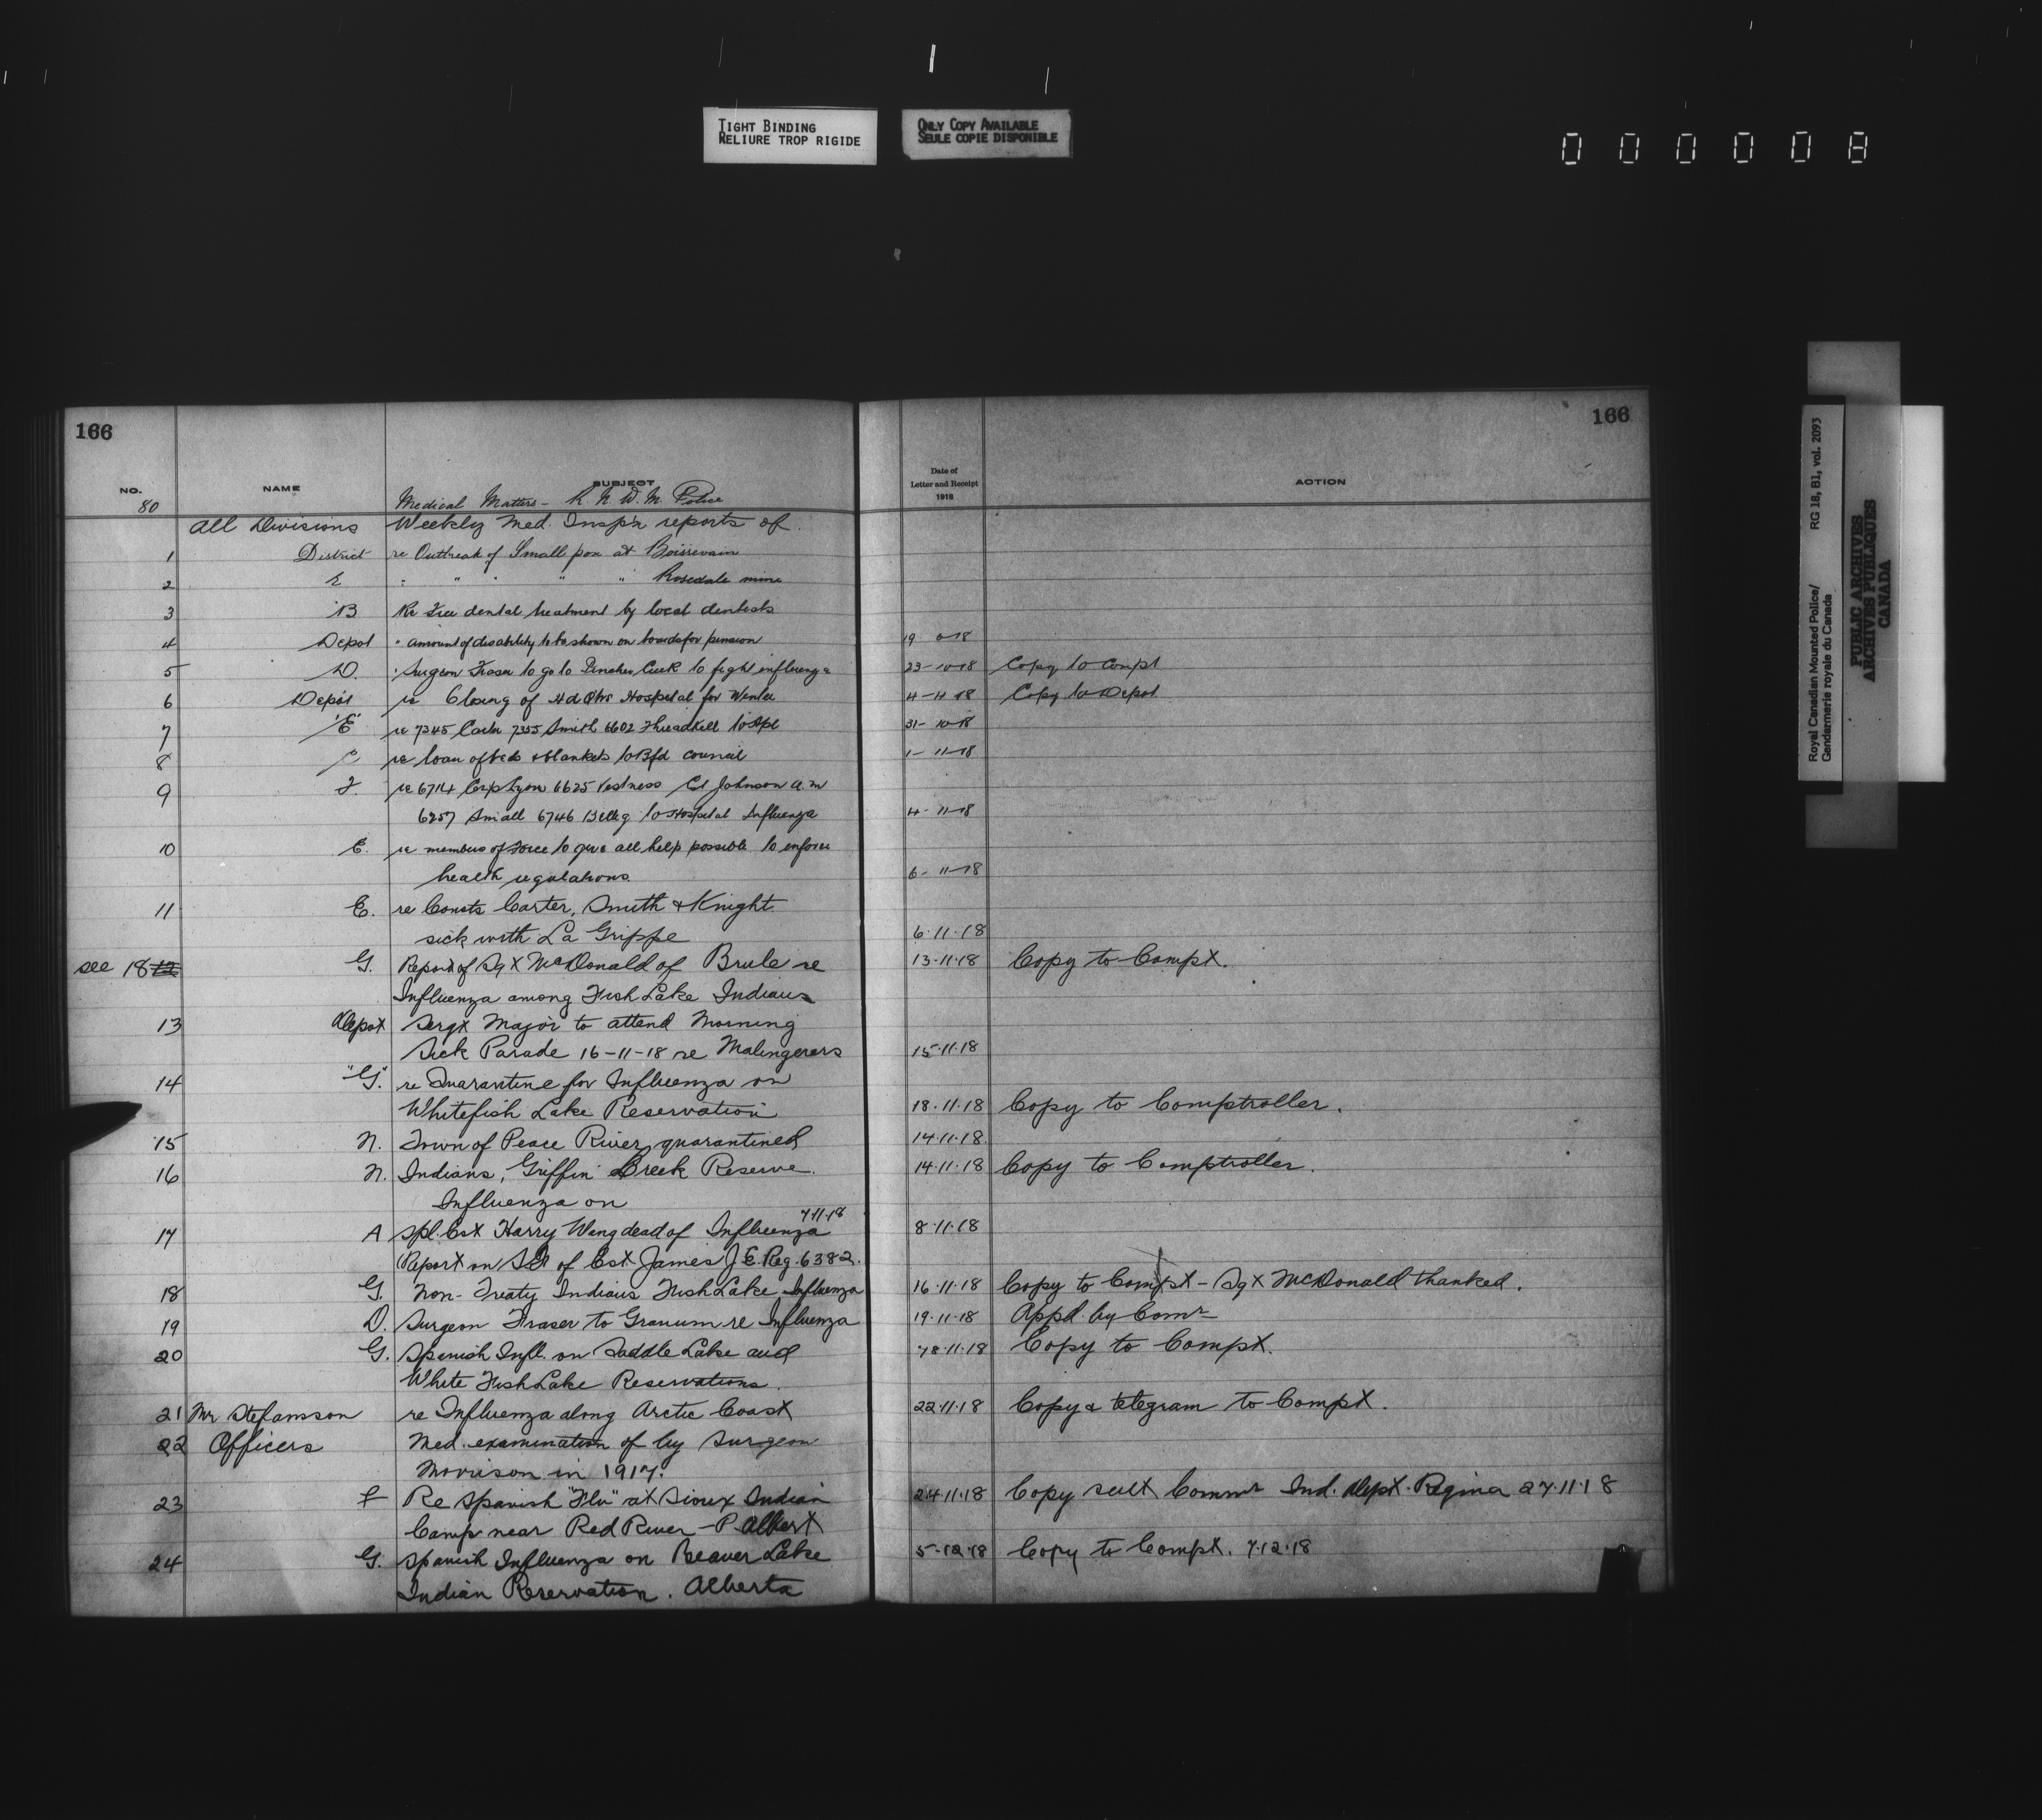 TIGHT BINDING
RELIURE TROP RIGIDE
ONLY COPY AVAILABLE
SEULE COPIE DISPONIBLE
000008
166
166
NO. NAME SUBJECT
Date of
Letter and Receipt
1918
ACTION
80 Medical Matters - R. N. W. M. Police
All Divisions Weekly Med. Insp'n reports of
1 District re Outbreak of Small pox at Boissevain
2 E " " " " " Rosedale mine
3 B Re Free dental treatment by local dentists
4 Depot " amount of disability to be shown on boards for pension 19
5 D. " Surgeon Fraser to go to Pincher Creek to fight influenza 23-10-18 Copy to Compt
6 Depot re Closing of Hd Qtrs Hospital for Winter 4-11-18 Copy to Depot
7 "E" re 7345 Carter 7355 Smith 6602 Threadkell to Hpl 31-10-18
8 re loan of beds & blankets to Bfd council 1-11-18
9 F. re 6714 Corp Lyon 6625 Ct Johnson A.M
6257 Small 6746 to Hospital Influenza 4-11-18
10 E. re members of Force to give all help possible to enforce
health regulations. 6-11-18
11 E. re Consts Carter, Smith & Knight
sick with La Grippe 6.11.18
see 18 12 G. Report of Sgt McDonald of Brule re 13.11.18 Copy to Compt.
Influenza among Fish Lake Indians
13 Depot Sergt Major to attend Morning
Sick Parade 16-11-18 re Malingerers 15.11.18
14 "G." re Quarantine for Influenza on
Whitefish Lake Reservation 18.11.18 Copy to Comptroller.
15 N. Town of Peace River quarantined 14.11.18.
16 N. Indians, Griffin Creek Reserve. 14.11.18 Copy to Comptroller.
Influenza on
7.11.18
17 A Spl. Cst Harry Wing dead of Influenza 8.11.18
Report on of Cst James J. E. Reg. 6382.
18 G. Non-Treaty Indians Fish Lake Influenza 16.11.18 Copy to Compt - Sgt McDonald thanked.
19 D. Surgeon Fraser to Granum re Influenza 19.11.18 Appd. by Comr
20 G. Spanish Infl. on Saddle Lake and 18.11.18 Copy to Compt.
White Fish Lake Reservations.
21 Mr Stefansson re Influenza along Arctic Coast 22.11.18 Copy & telegram to Compt.
22 Officers Med. examination of by Surgeon
Morrison in 1917.
23 F Re Spanish "Flu" at Sioux Indian 24.11.18 Copy sent Commr Ind. Dept. Regina 27.11.18
Camp near Red River - P. Albert
24 G. Spanish Influenza on Beaver Lake 5.12.18 Copy to Compt. 7.12.18
Indian Reservation. Alberta
Royal Canadian Mounted Police/
Gendarmerie royale du Canada
RG 18, B1, vol. 2093
PUBLIC ARCHIVES
ARCHIVES PUBLIQUES
CANADA